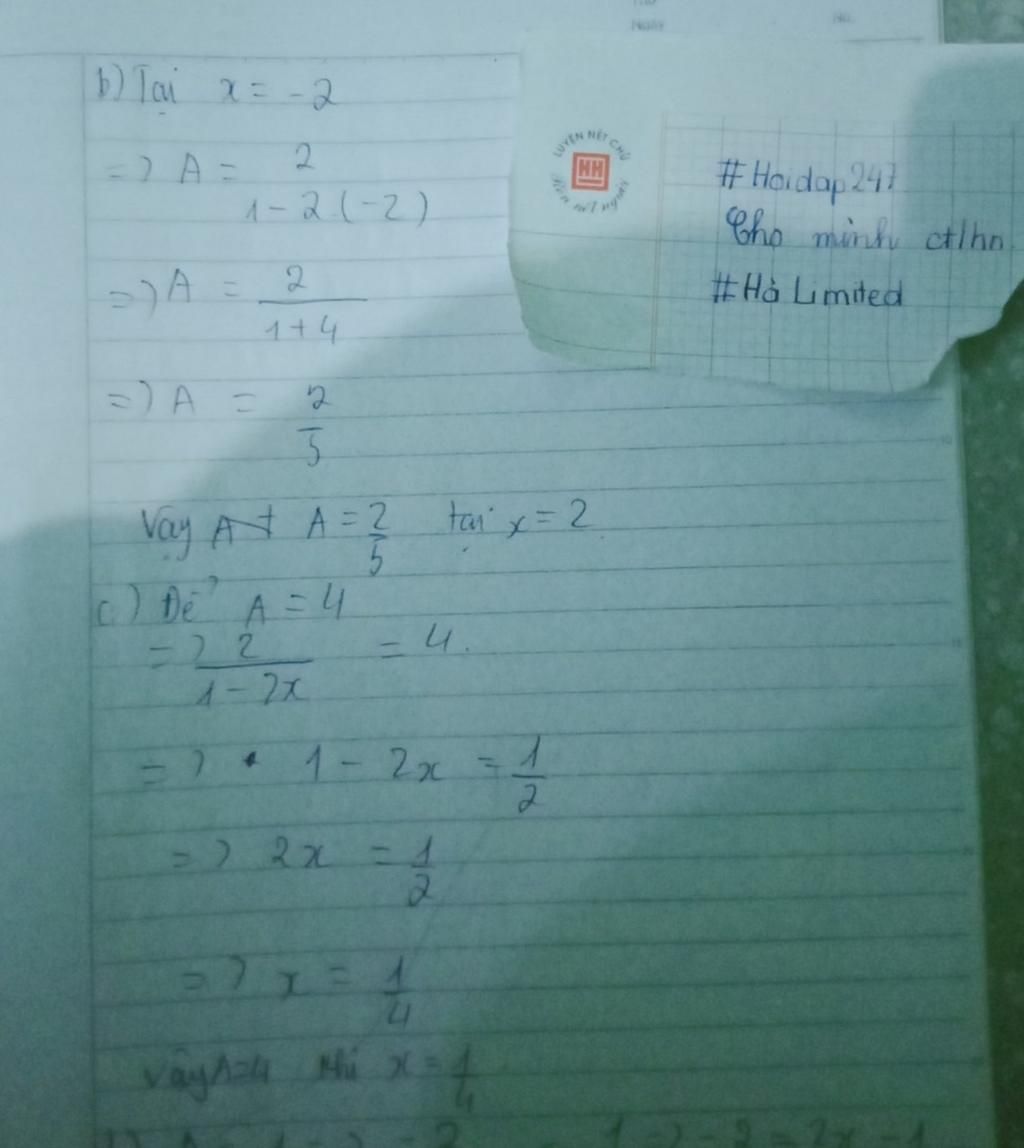 Ngày
No.
b) Tại x = -2
=> A = 2
1 - 2 (-2)
=> A = 2
1 + 4
=> A = 2
5
Vậy A = 2 tại x = 2
5
c) Để A = 4
=> 2 = 4.
1 - 2x
=> 1 - 2x = 1
2
=> 2x = 1
2
=> x = 1
4
Vậy A=4 khi x = 1
4
LUYỆN NÉT CHỮ
HH
Rèn nết người
#Hoidap247
Cho mình ctlhn
#Hà Limited